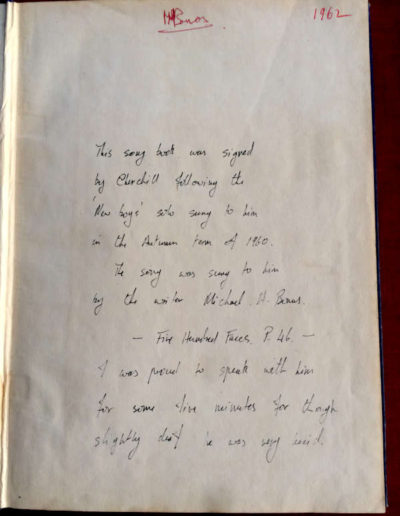 1962
This song book was signed
by Churchill following the
'New boys' solo sung to him
in the Autumn term of 1960.
The song was sung to him
by the writer Michael H.
— Five Hundred Faces. P. 46. —
I was proud to speak with him
for some five minutes for though
slightly deaf he was very lucid.